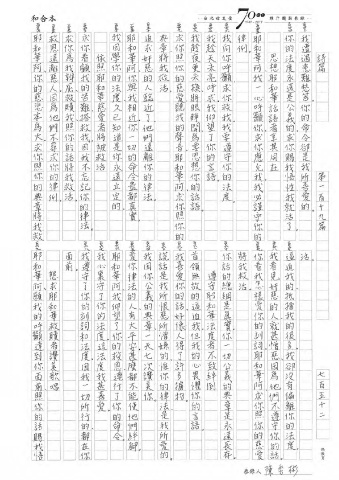 和合本
70
詩篇
第一百十九篇
七百五十二
我遭遇患難愁苦你的命令卻是我所喜愛的
你的法度永遠是公義的求你賜我悟性我就活了
思想耶和華話語者蒙其同在
耶和華阿我一心呼籲求你應允我我必謹守你的
律例
我向你呼籲求你救我我要遵守你的法度
我趁天未亮呼求我仰望了你的言語
我趁夜更未換將眼睜開為要思想你的話語
求你照你的慈愛聽我的聲音耶和華阿求你照你的
典章將我救活
追求奸惡的人臨近了他們遠離你的律法
耶和華阿你與我相近你一切的命令盡都真實
我因學你的法度久已知道是你永遠立定的
依照耶和華慈愛者將被救活
求你看顧我的苦難搭救我因我不忘記你的律法
求你為我辨屈救贖我照你的話將我救活
救恩遠離惡人因為他們不尋求你的律例
耶和華阿你的慈悲本為大求你照你的典章將我救
活
逼迫我的抵擋我的很多我卻沒有偏離你的法度
我看見奸惡的人就甚憎惡因為他們不遵守你的話
你看我怎樣愛你的訓詞耶和華阿求你照你的慈愛
將我救活
你話的總綱是真實你一切公義的典章是永遠長存
遵守耶和華法度者不致絆倒
首領無故的逼迫我但我的心畏懼你的言語
我喜愛你的話好像人得了許多擄物
謊話是我所恨惡所憎嫌的惟你的律法是我所愛的
我因你公義的典章一天七次讚美你
愛你律法的人有大平安甚麼都不能使他們絆腳
耶和華阿我仰望了你的救恩遵行了你的命令
我心裏守了你的法度這法度我甚喜愛
我遵守了你的訓詞和法度因我一切所行的都在你
面前
懇求耶和華救贖者讚美歌唱
耶和華阿願我的呼籲達到你面前照你的話賜我悟